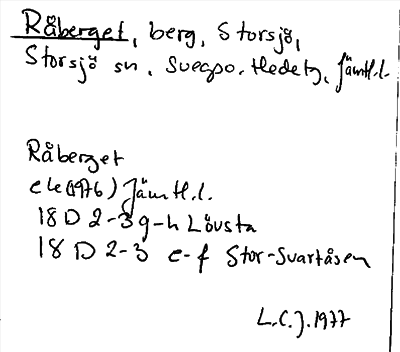 Råberget, berg, Storsjö,
Storsjö sn, Svegpo. Hede tg, Jämtl.l.
Råberget
ek (1976) Jämtl.l.
18 D 2-3 g-h Lövsta
18 D 2-3 e-f Stor-Svartåsen
L.C.J. 1977